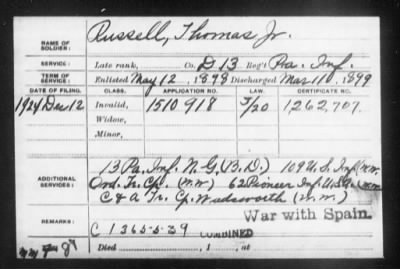 NAME OF SOLDIER: Russell, Thomas Jr.
SERVICE: Late rank, Co. D 13 Reg't Pa. Inf.
TERM OF SERVICE: Enlisted May 12, 1898 Discharged Mar 11, 1899
DATE OF FILING. CLASS. APPLICATION NO. LAW. CERTIFICATE NO.
1924 Dec 12 Invalid, 1510 918 5/20 1262,707.
Widow,
Minor,
13 Pa. Inf. N.G. (B.D.) 109 U.S. Inf (W.W.
ADDITIONAL SERVICES: Ord. Tr. Cp. (W.W) 62 Pioneer Inf. U.S.A. (W.W
C & A Tr. Cp. Wadsworth (W.W.)
War with Spain.
REMARKS: C 1 365-5-39
COMBINED
Died , 1 , at